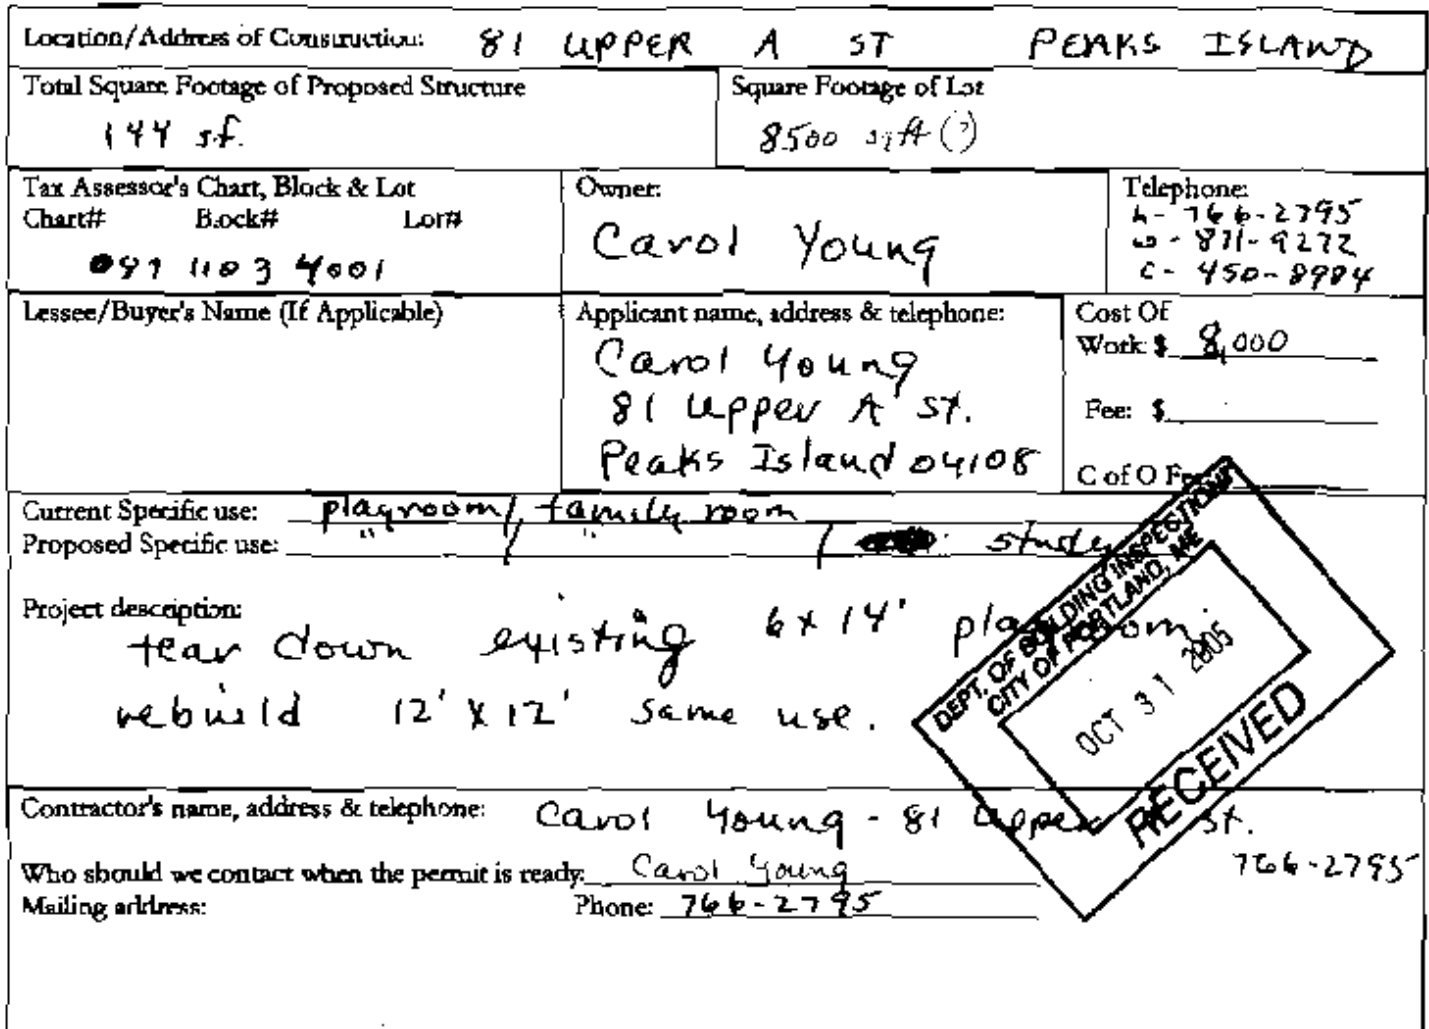 Location/Address of Construction: 81 UPPER A ST PEAKS ISLAND
Total Square Footage of Proposed Structure
144 s.f.
Square Footage of Lot
8500 sqft (?)
Tax Assessor's Chart, Block & Lot
Chart# Block# Lot#
4001
Owner:
Carol Young
Telephone:
h- 766-2795
w- 871-9272
c- 450-8984
Lessee/Buyer's Name (If Applicable)
Applicant name, address & telephone:
Carol Young
81 Upper A St.
Peaks Island 04108
Cost Of
Work: $ 8,000
Fee: $
C of O Fee
Current Specific use: playroom/ family room
Proposed Specific use: " / " / study
Project description:
tear down existing 6x14' playroom
rebuild 12' x 12' same use.
DEPT. OF BUILDING INSPECTIONS
CITY OF PORTLAND, ME
OCT 31 2005
RECEIVED
Contractor's name, address & telephone: Carol Young - 81 Upper St.
766-2795
Who should we contact when the permit is ready: Carol Young
Mailing address: Phone: 766-2795